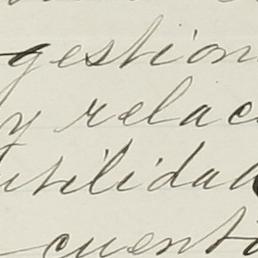 gestion
y relac
utilidad
cuent